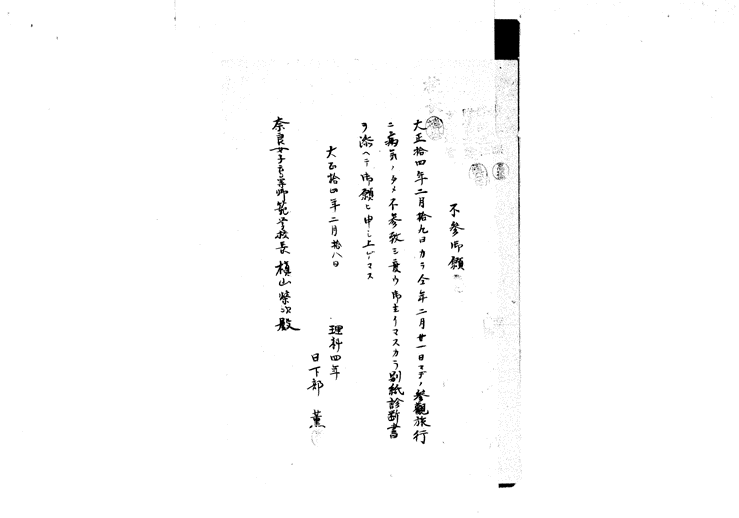 不參御願
大正拾四年二月拾九日カラ仝年二月廿一日マデノ參觀旅行
ニ病氣ノタメ不參致シ度ウ御坐イマスカラ別紙診斷書
ヲ添ヘテ御願ヒ申シ上ゲマス
大正拾四年二月拾八日
理科四年
日下部 薫
奈良女子高等師範学校長 槇山榮次殿